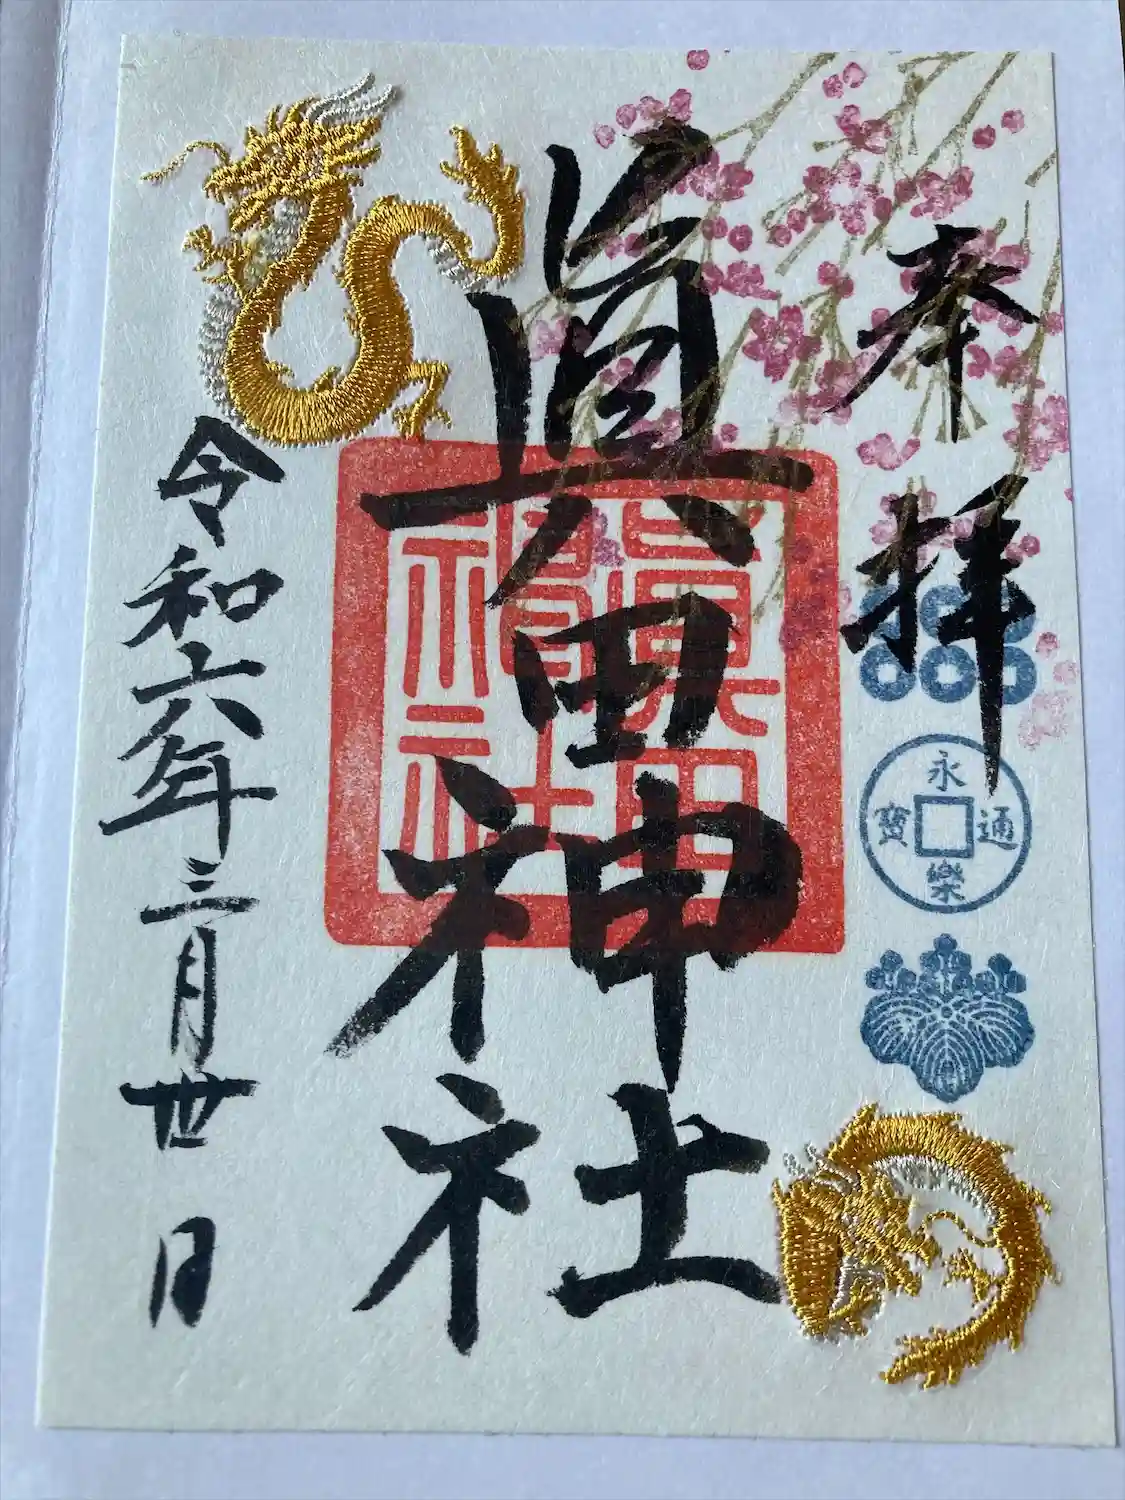 奉拝
永樂通寶
眞田神社
眞田
神社
令和六年三月丗日